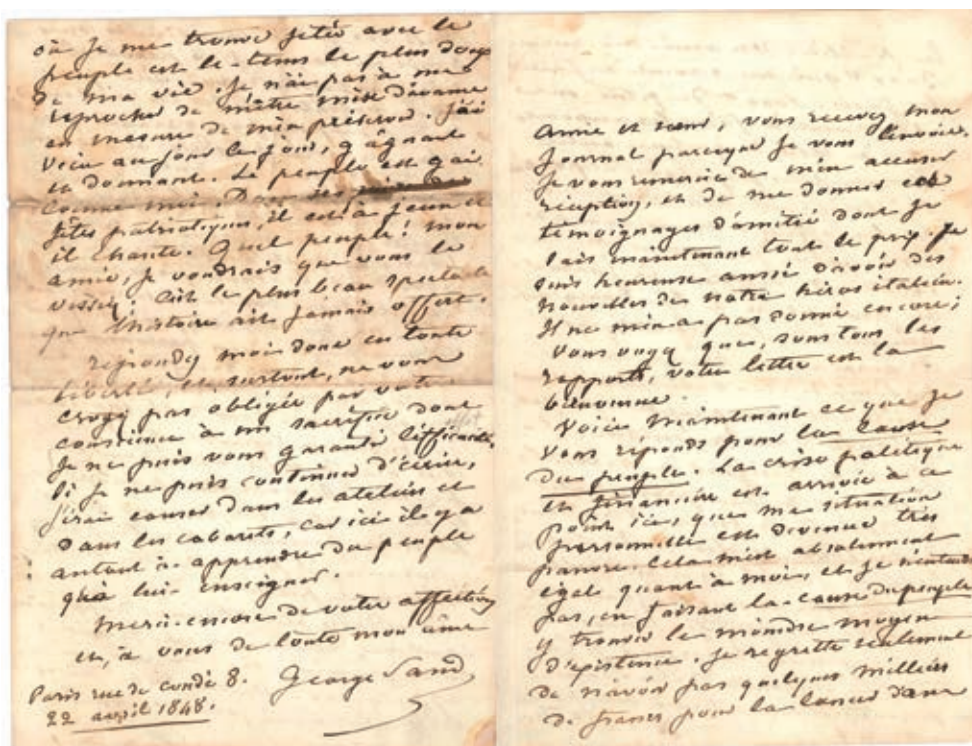 où je me trouve jetée avec le
peuple est le tems le plus doux
de ma vie. Je n'ai pas à me
reprocher de m'être mise d'avance
en mesure de m'en préserver. J'ai
vécu au jour le jour, gagnant
et donnant. Le peuple est gai
comme moi. Dans ses
fêtes patriotiques, il est à jeun et
il chante. Quel peuple! mon
amie, je voudrais que vous le
vissiez. C'est le plus beau spectacle
que l'histoire ait jamais offert.
Répondez moi donc en toute
liberté, et, surtout, ne vous
croyez pas obligée par votre
conscience à un sacrifice dont
je ne puis vous garantir l'efficacité.
Si je ne puis continuer d'écrire,
j'irai causer dans les ateliers et
dans les cabarets, car ici il y a
autant à apprendre du peuple
qu'à lui enseigner.
Merci encore de votre affection
et, à vous de toute mon âme
George Sand
Paris rue de condé 8.
22 avril 1848.
Amie et sœur, vous recevez mon
journal parceque je vous l'envoie.
Je vous remercie de m'en accuser
réception, et de me donner ces
témoignages d'amitié dont je
sais maintenant tout le prix. Je
suis heureuse aussi d'avoir des
nouvelles de notre héros italien.
Il ne m'en a pas donné encore;
vous voyez que, sous tous les
rapports, votre lettre est la
bienvenue.
Voici maintenant ce que je
vous réponds pour la cause
du peuple. La crise politique
et financière est arrivée à ce
point ici, que ma situation
personnelle est devenue très
pauvre. Cela m'est absolument
égal quant à moi, et je n'entends
pas, en faisant la cause du peuple
y trouver le moindre moyen
d'existence. Je regrette seulement
de n'avoir pas quelques milliers
de francs pour la lancer d'une